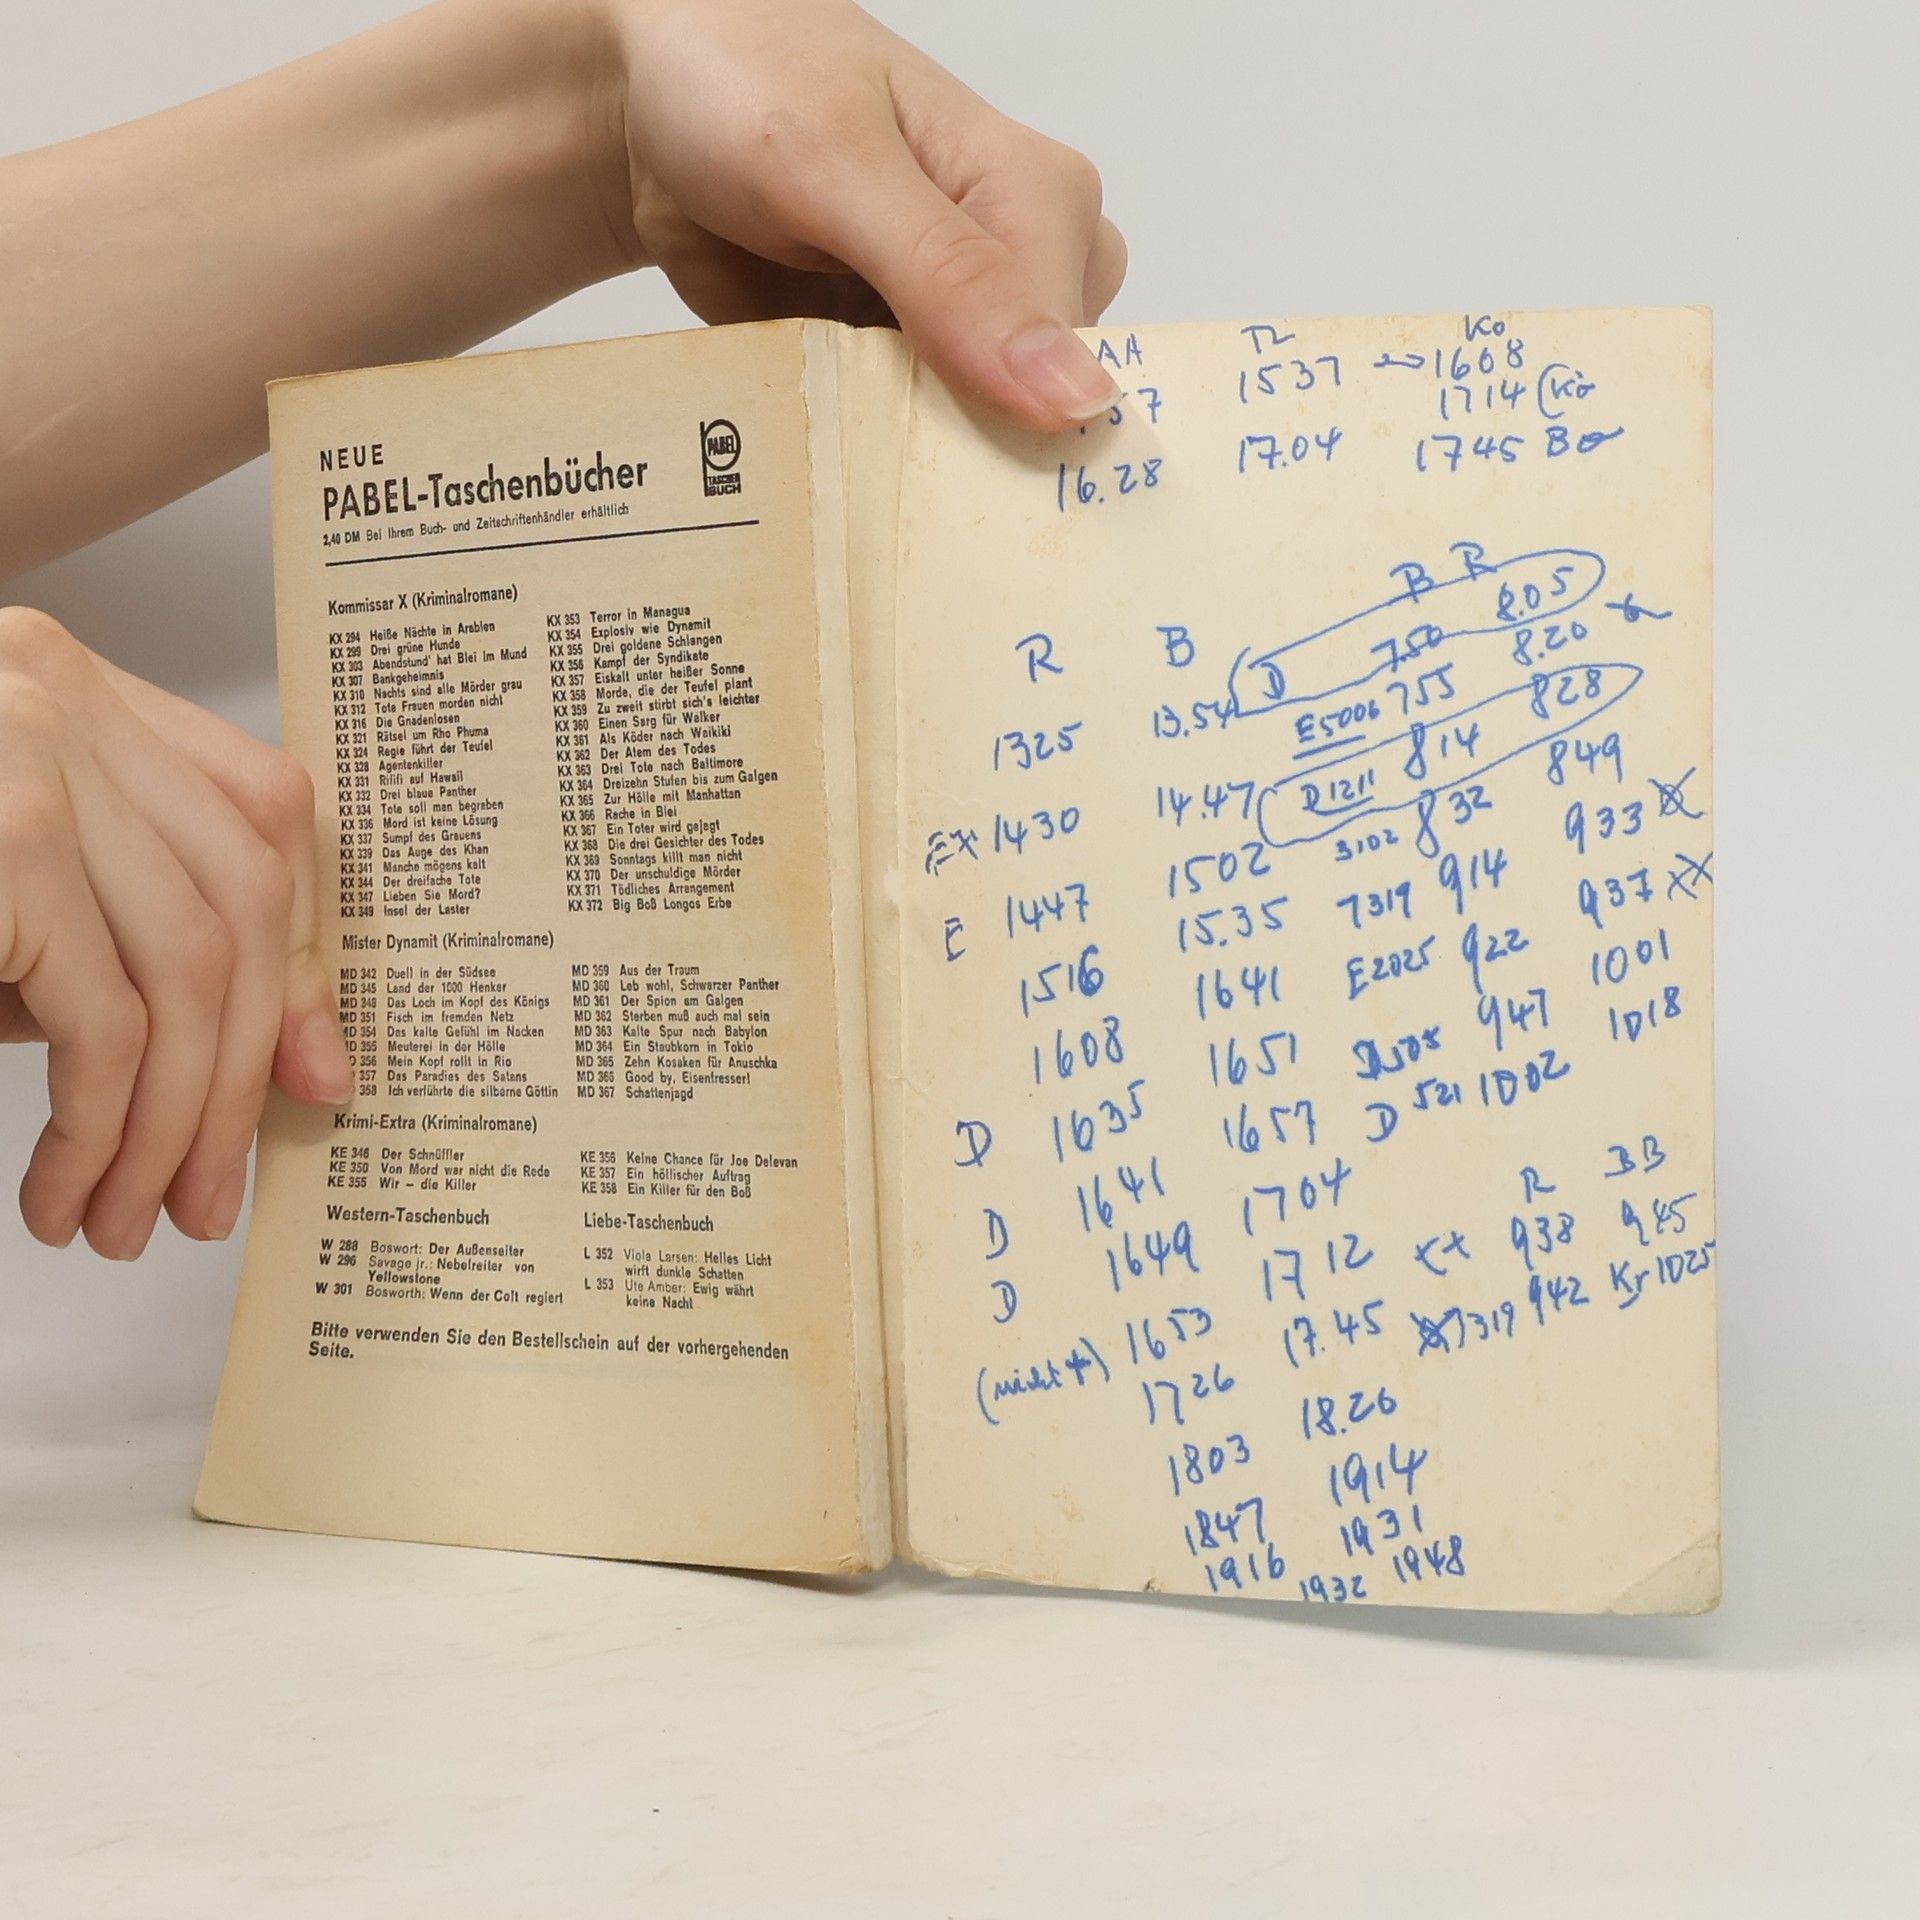 NEUE
PABEL-Taschenbücher
PABEL
TASCHEN
BUCH
2,40 DM Bei Ihrem Buch- und Zeitschriftenhändler erhältlich
Kommissar X (Kriminalromane)
KX 294 Heiße Nächte in Arabien
KX 299 Drei grüne Hunde
KX 303 Abendstund' hat Blei im Mund
KX 307 Bankgeheimnis
KX 310 Nachts sind alle Mörder grau
KX 312 Tote Frauen morden nicht
KX 316 Die Gnadenlosen
KX 321 Rätsel um Rho Phuma
KX 324 Regie führt der Teufel
KX 328 Agentenkiller
KX 331 Rififi auf Hawaii
KX 332 Drei blaue Panther
KX 334 Tote soll man begraben
KX 336 Mord ist keine Lösung
KX 337 Sumpf des Grauens
KX 339 Das Auge des Khan
KX 341 Manche mögens kalt
KX 344 Der dreifache Tote
KX 347 Lieben Sie Mord?
KX 349 Insel der Laster
KX 353 Terror in Managua
KX 354 Explosiv wie Dynamit
KX 355 Drei goldene Schlangen
KX 356 Kampf der Syndikate
KX 357 Eiskalt unter heißer Sonne
KX 358 Morde, die der Teufel plant
KX 359 Zu zweit stirbt sich's leichter
KX 360 Einen Sarg für Walker
KX 361 Als Köder nach Waikiki
KX 362 Der Atem des Todes
KX 363 Drei Tote nach Baltimore
KX 364 Dreizehn Stufen bis zum Galgen
KX 365 Zur Hölle mit Manhattan
KX 366 Rache in Blei
KX 367 Ein Toter wird gejagt
KX 368 Die drei Gesichter des Todes
KX 369 Sonntags killt man nicht
KX 370 Der unschuldige Mörder
KX 371 Tödliches Arrangement
KX 372 Big Boß Longos Erbe
Mister Dynamit (Kriminalromane)
MD 342 Duell in der Südsee
MD 345 Land der 1000 Henker
MD 348 Das Loch im Kopf des Königs
MD 351 Fisch im fremden Netz
MD 354 Das kalte Gefühl im Nacken
MD 355 Meuterei in der Hölle
356 Mein Kopf rollt in Rio
357 Das Paradies des Satans
358 Ich verführte die silberne Göttin
MD 359 Aus der Traum
MD 360 Leb wohl, Schwarzer Panther
MD 361 Der Spion am Galgen
MD 362 Sterben muß auch mal sein
MD 363 Kalte Spur nach Babylon
MD 364 Ein Staubkorn in Tokio
MD 365 Zehn Kosaken für Anuschka
MD 366 Good by, Eisenfresser!
MD 367 Schattenjagd
Krimi-Extra (Kriminalromane)
KE 346 Der Schnüffler
KE 350 Von Mord war nicht die Rede
KE 355 Wir – die Killer
KE 356 Keine Chance für Joe Delevan
KE 357 Ein höllischer Auftrag
KE 358 Ein Killer für den Boß
Western-Taschenbuch
W 288 Boswort: Der Außenseiter
W 296 Savage jr.: Nebelreiter von
Yellowstone
W 301 Bosworth: Wenn der Colt regiert
Liebe-Taschenbuch
L 352 Viola Larsen: Helles Licht
wirft dunkle Schatten
L 353 Ute Amber: Ewig währt
keine Nacht
Bitte verwenden Sie den Bestellschein auf der vorhergehenden
Seite.
AA Ko
57 1537 1608
1714
16.28 17.04 1745
B R
R B D 750 8.05
1325 13.54 E5006 755 8.20
1430 14.47 D1211 814 828
E 1447 1502 3102 832 849
1516 15.35 7319 914 933
1608 1641 E2025 922 937 xx
D 1635 1651 947 1001
D 1641 1657 D 521 1002 1018
D 1649 1704 R BB
(nicht +) 1653 1712 xx 938 945
1726 17.45 7319 942 Kr 1025
1803 18.26
1847 1914
1916 1931
1932 1948